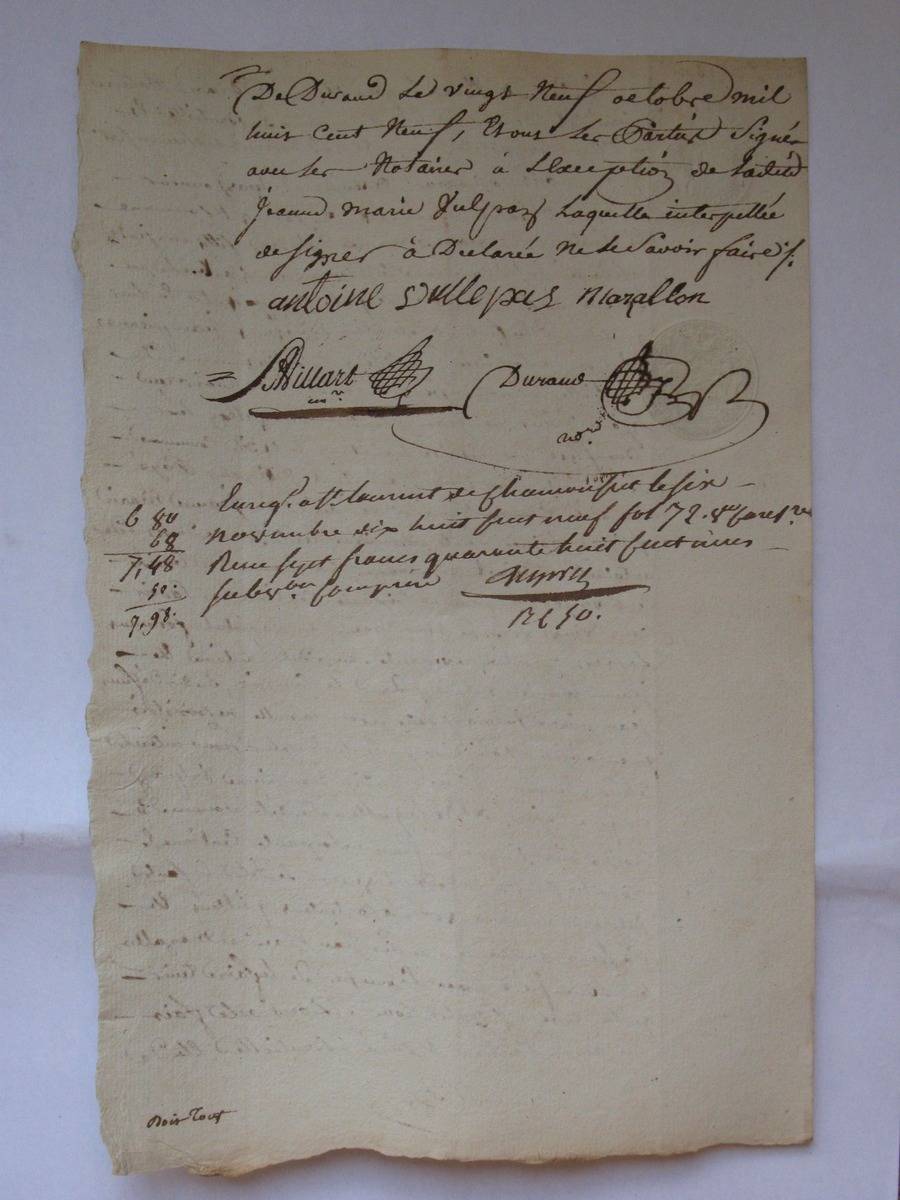 De Durand le vingt neuf octobre mil
huit cent neuf, et ont les Parties signé
avec les Notaires à l'exception de ladite
Jeanne marie Vulpas laquelle interpellée
de signer à Déclarée ne le savoir faire ./.
antoine vullepas mazallon
Villart Durand
nre nore
Enregé. a St laurent de Chamousset le six
novembre dix huit cent neuf fol 72. vo
Reçu sept francs quarante huit centimes
subvon comprise
R C 50.
6 80
68
7,48
50
7,98
Doit Tout